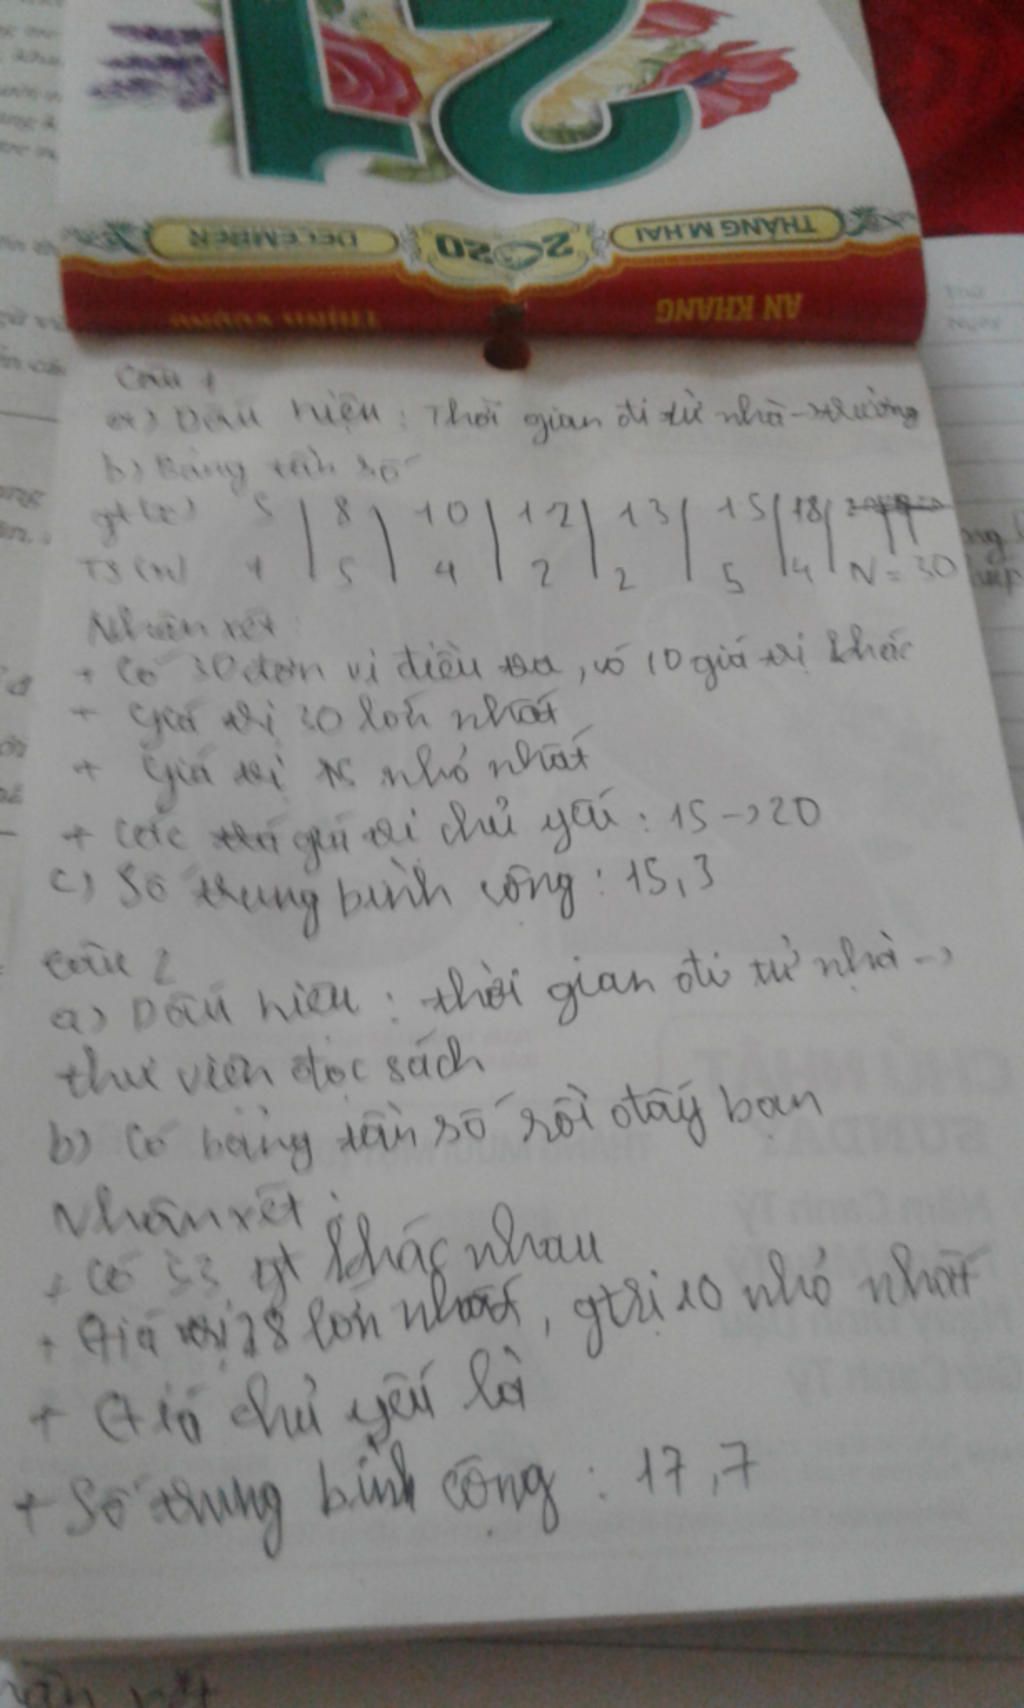 21
THÁNG M.HAI 2020 DECEMBER
AN KHANG THỊNH VƯỢNG
Câu 1
a) Dấu hiệu : Thời gian đi từ nhà → trường
b) Bảng tần số
gt(x) 5 | 8 | 10 | 12 | 13 | 15 | 18 |
TS (n) 1 | 5 | 4 | 2 | 2 | 5 | 4 | N = 30
Nhận xét :
+ Có 30 đơn vị điều tra, có 10 giá trị khác
+ giá trị 30 lớn nhất
+ giá trị nhỏ nhất
+ Các giá trị chủ yếu : 15 → 20
c) Số trung bình cộng : 15,3
Câu 2
a) Dấu hiệu : thời gian đi từ nhà →
thư viện đọc sách
b) Có bảng tần số rồi đấy bạn
Nhận xét :
+ Có 33 gt khác nhau
+ Giá trị 28 lớn nhất, gtrị 10 nhỏ nhất
+ Giá chủ yếu là
+ Số trung bình cộng : 17,7
CHỦ NHẬT
SUNDAY
Năm Canh Tý